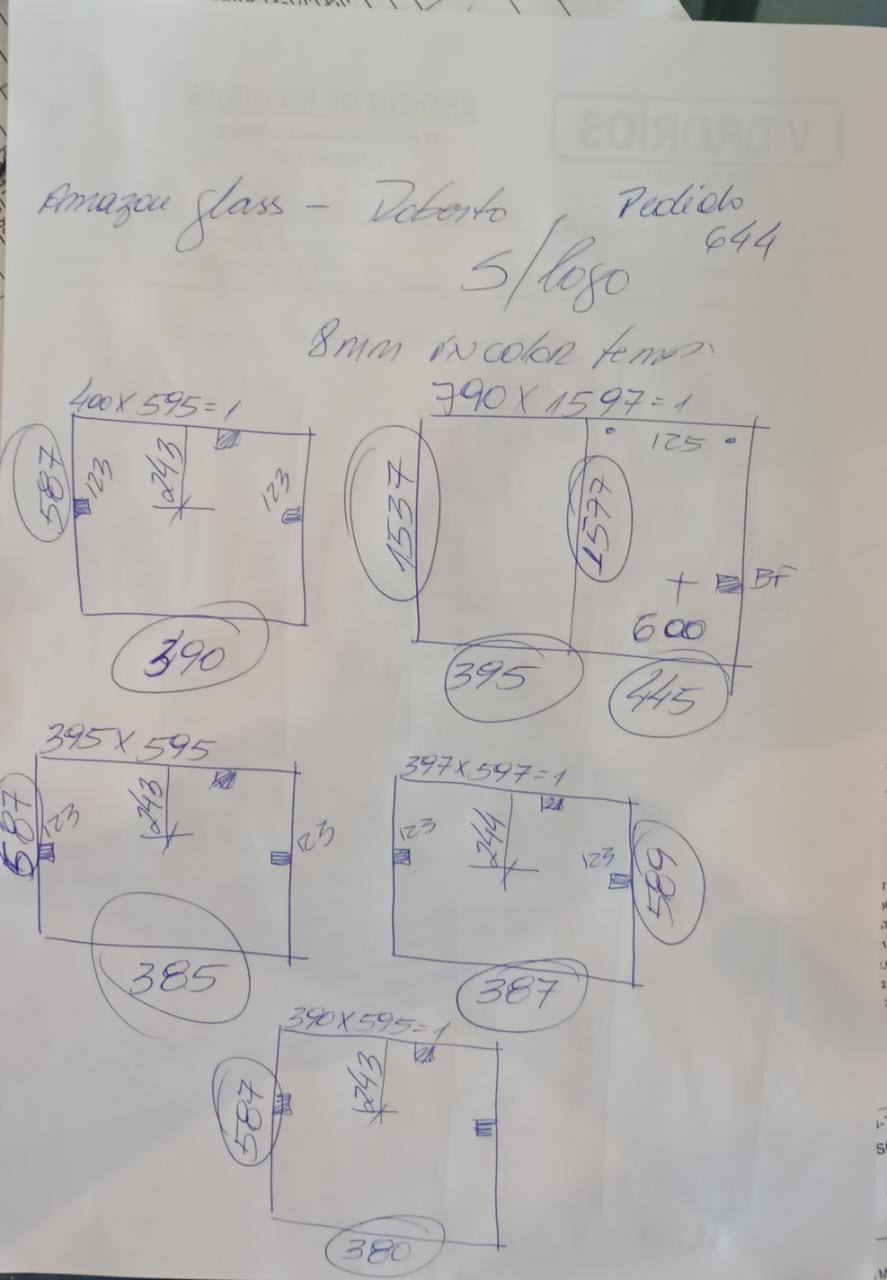 CROQUI DE MEDIDAS
VIDRORIOS
Amazon glass - Roberto Pedido
644
S/logo
8mm incolor temp.
400 x 595 = 1
587
123
243
123
390
790 x 1597 = 1
1537
1577
125
BF
600
395
445
395 x 595
587
123
243
123
385
397 x 597 = 1
123
244
123
589
387
390 x 595 = 1
587
243
380